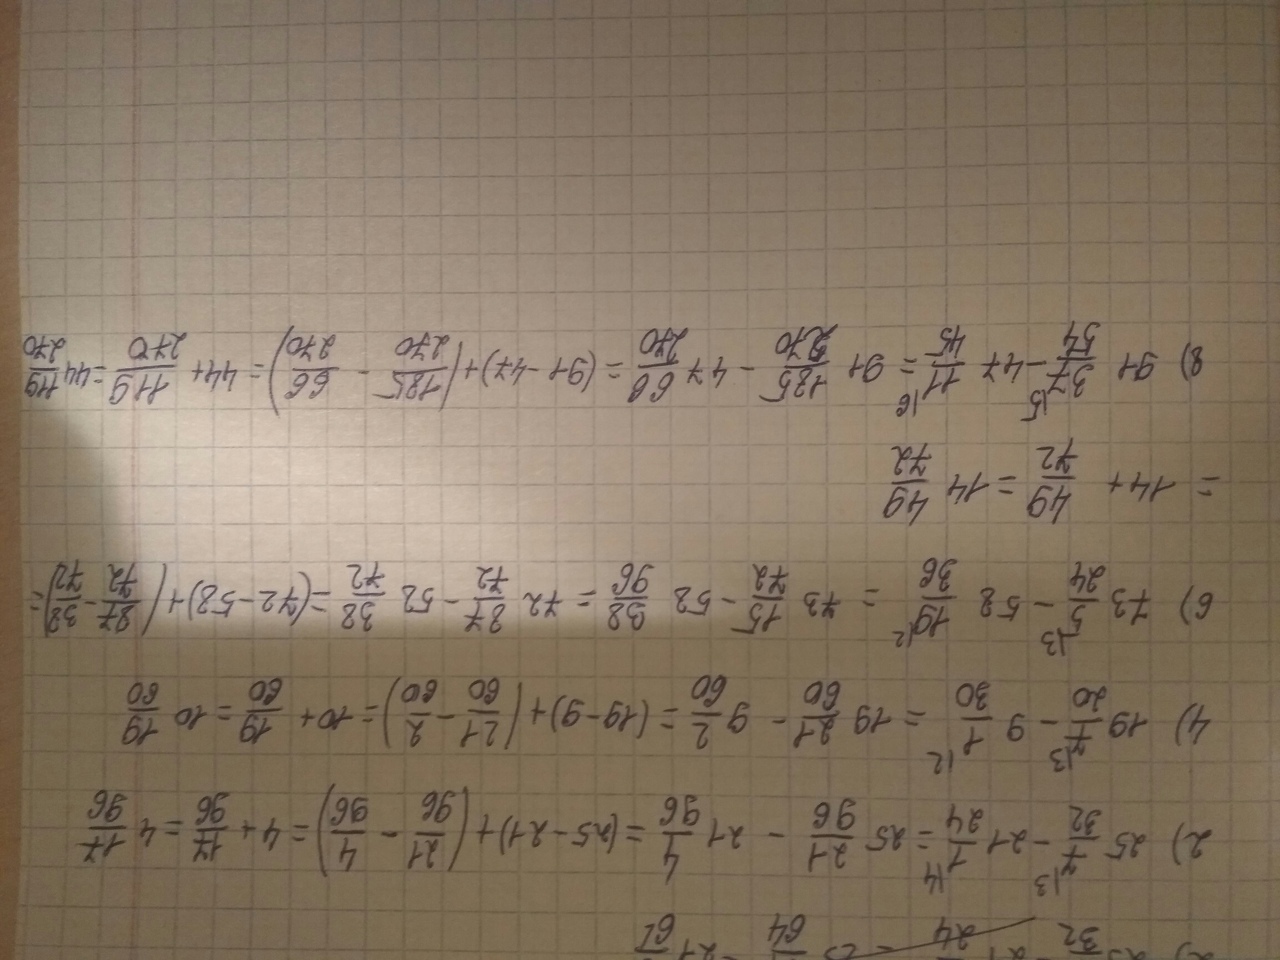 2) 25 7/32 - 21 1/24 = 25 21/96 - 21 4/96 = (25-21)+(21/96 - 4/96) = 4+ 17/96 = 4 17/96
4) 19 7/20 - 9 1/30 = 19 21/60 - 9 2/60 = (19-9)+(21/60 - 2/60) = 10+ 19/60 = 10 19/60
6) 73 5/24 - 58 19/36 = 73 15/72 - 58 38/96 = 72 87/72 - 58 38/72 = (72-58)+(87/72 - 38/72) =
= 14+ 49/72 = 14 49/72
8) 91 37/54 - 47 11/45 = 91 185/270 - 47 66/270 = (91-47)+(185/270 - 66/270) = 44+ 119/270 = 44 119/270